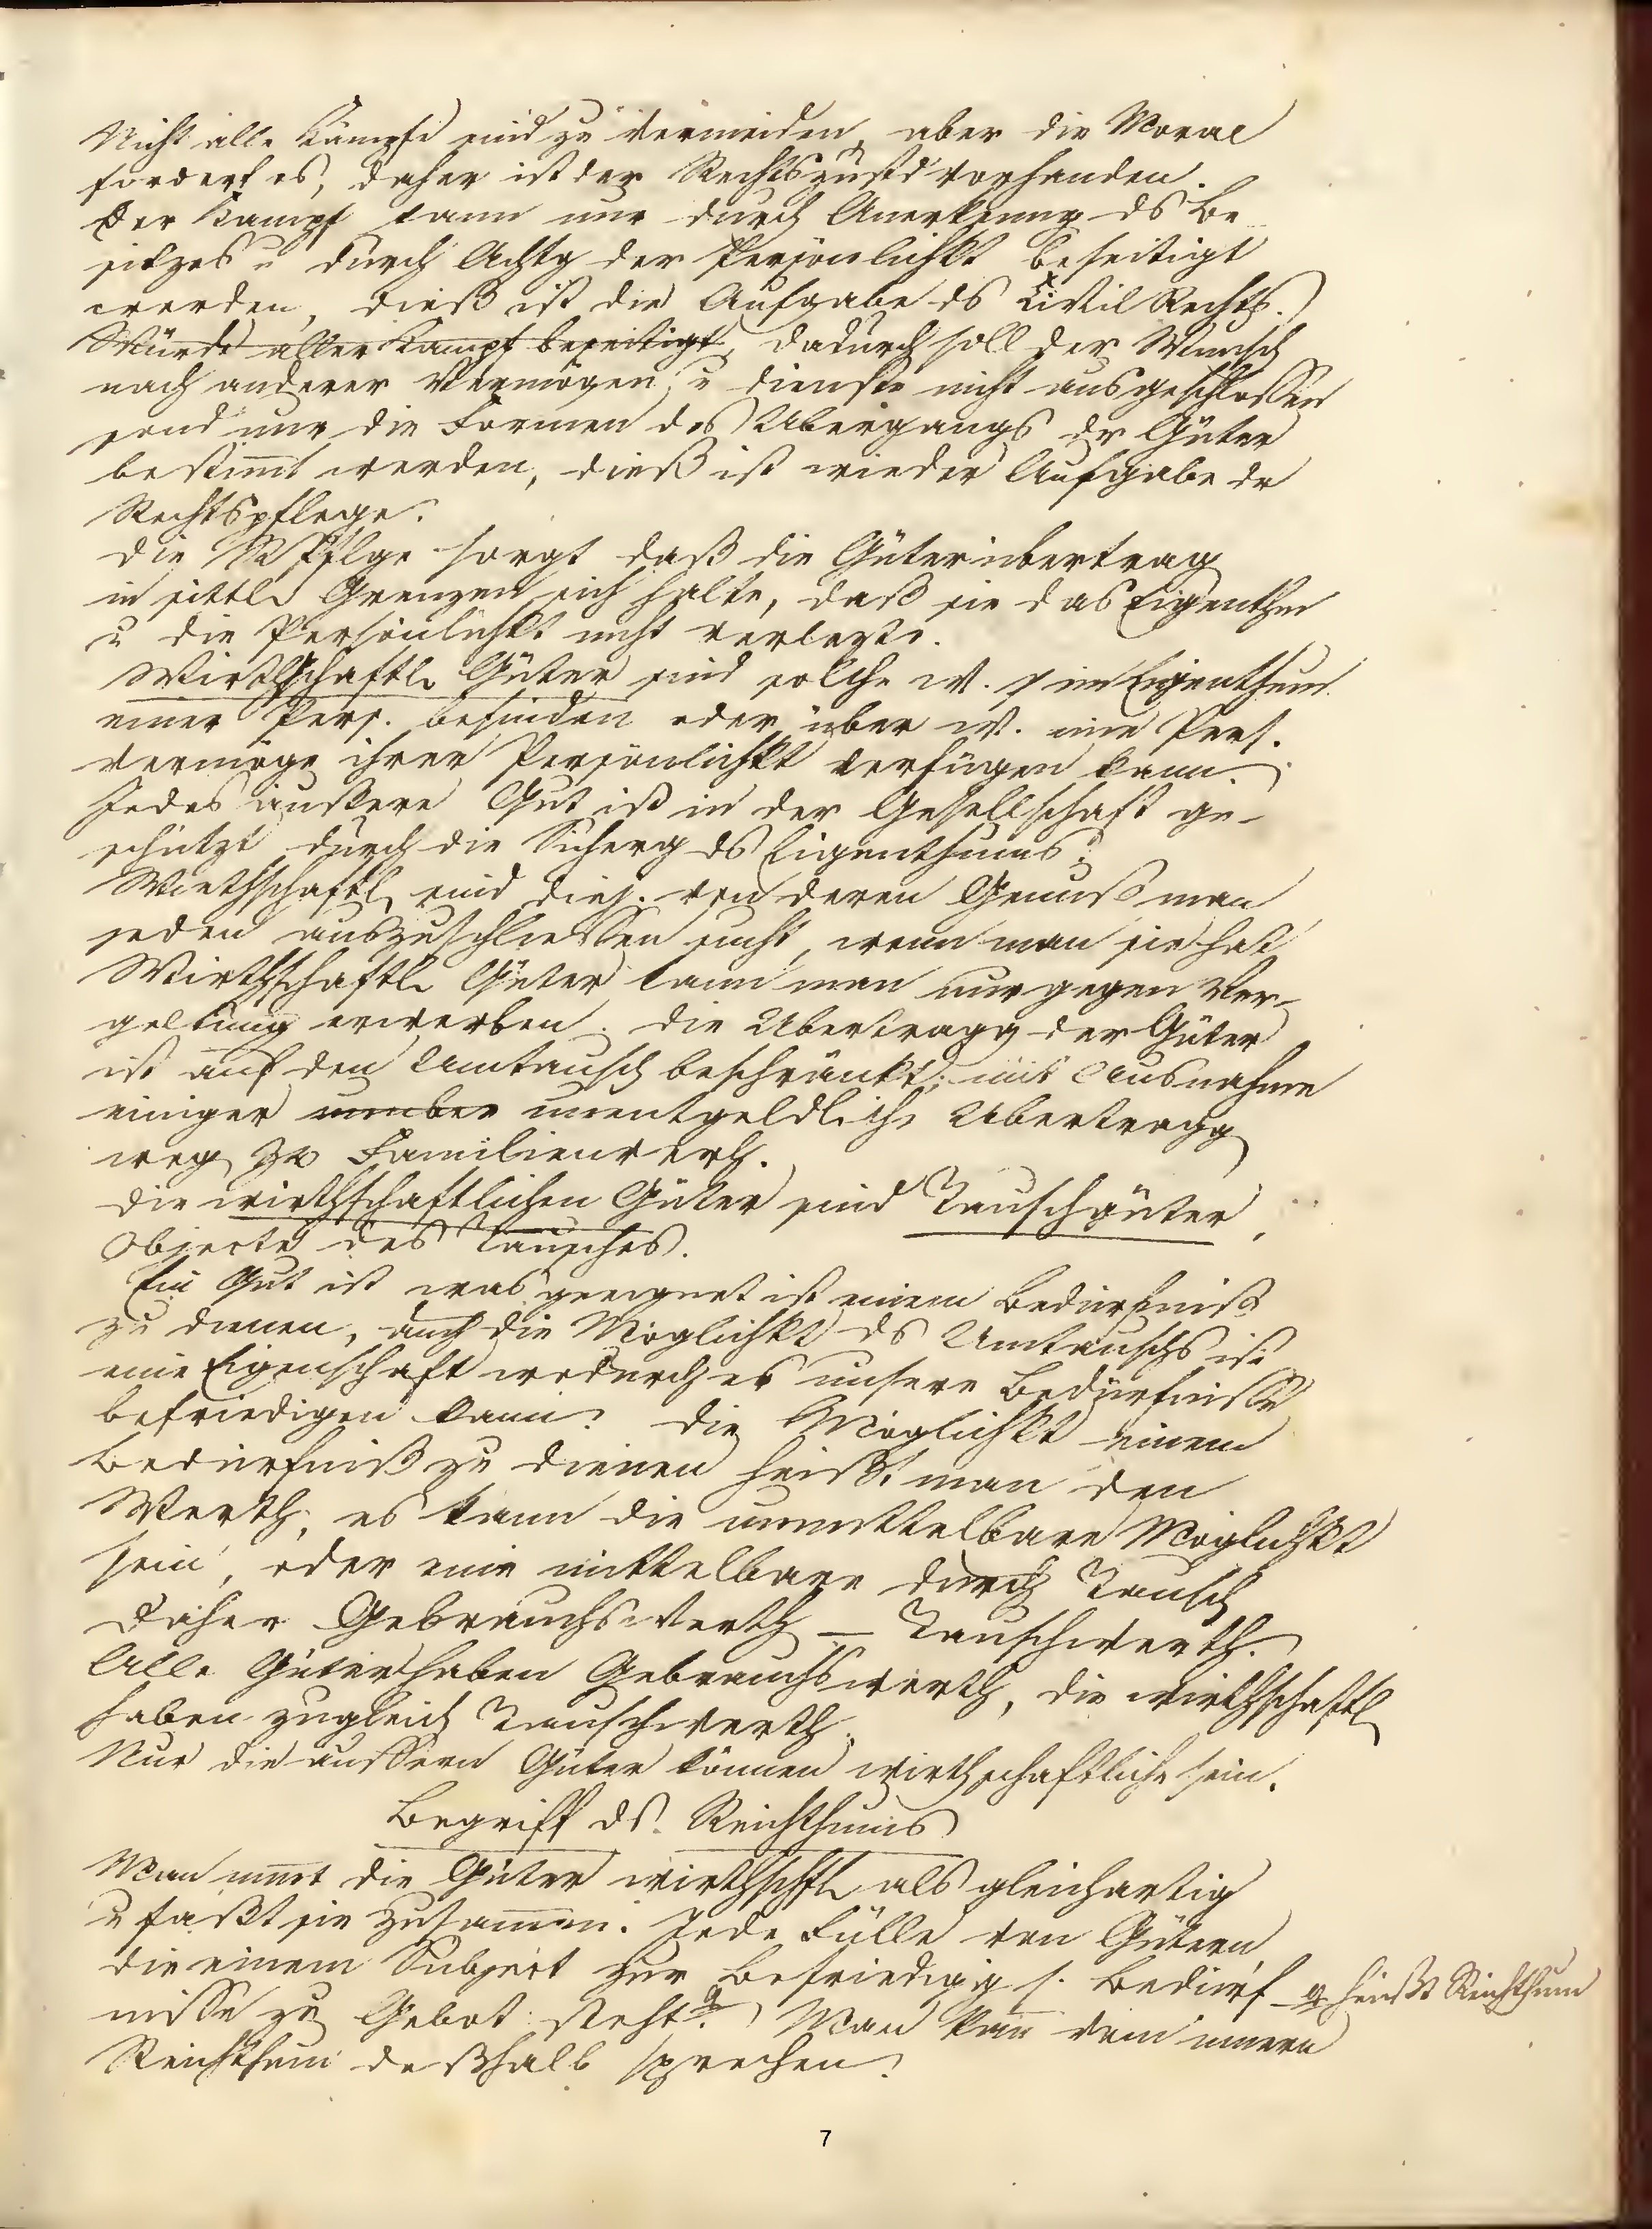 Nicht alle Kämpfe sind zu vermeiden, aber die Moral
fordert es, daher ist der Rechtszustd vorhanden.
Der Kampf kann nur durch Anerkenng ds Be
sitzes u durch Achtg der Persönlichkt beseitigt
werden, dieß ist die Aufgabe ds Civil Rechts.
Würde aller Kampf beseitigt, dadurch soll der Wunsch
nach anderer Vermögen u dienste nicht ausgeschlossen
sond nur die Formen des Übergangs dr Güter
bestimt werden, dieß ist wieder Aufgabe dr
Rechtspflege.
Die RPflge sorgt daß die Güterübertrag
in sittl Grenzen sich halte, daß sie das Eigenthm
u die Persönlichkt nicht verletzte.
Wirthschaftl Güter sind solche w. s im Eigenthum
einer Pers. befinden oder über w. eine Pers.
vermöge ihrer Persönlichkt verfügen kann.
Jedes äußere Gut ist in der Gesellschaft ge-
schützt durch die Sicherg ds Eigenthums.
Wirthschaftl sind diej. von deren Genuß man
jeden auszuschließen sucht, wenn man sie hat
Wirthschaftl Güter kann man nur gegen Ver-
geltung erwerben. Die Übertragg der Güter
ist auf den Umtausch beschränkt, mit Ausnahme
einiger unentgeldlich Übertragg
weg Familienverh.
Die wirthschaftlichen Güter sind Tauschgüter,
Objecte des Tausches.
Ein Gut ist was geeignet ist einem Bedürfniß
zu dienen, auch die Möglichkt ds Umtauschs ist
eine Eigenschaft wodurch es unsere Bedürfnisse
befriedigen kann. Die Möglichkt einem
Bedürfniß zu dienen heißt man den
Werth, es kann die unmittelbare Möglichkt
sein, oder eine mittelbare durch Tausch
Daher Gebrauchswerth – Tauschwerth.
Alle Güter haben Gebrauchswerth, die wirthschaftl
haben zugleich Tauschwerth.
Nur die äussern Güter können wirthschaftliche sein.
Begriff ds. Reichthums
Man nimt die Güter wirthschftl als gleichartig
u faßt sie zusamen. Jede Fülle von Gütern
die einem Subject zur Befriedigg s. Bedürf heißt Reichthum
nisse zu Gebot steht. Man kan vom innern
Reichthum deßhalb sprechen.
7